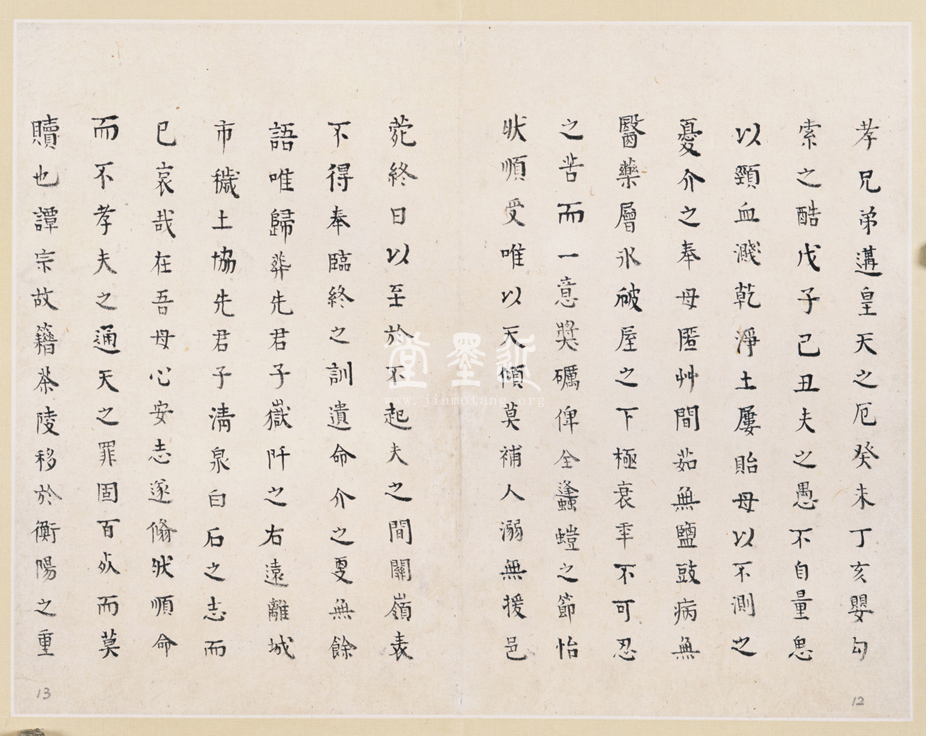 孝兄弟遘皇天之厄癸未丁亥嬰勾
索之酷戊子己丑夫之愚不自量思
以頸血濺乾淨土屢貽母以不測之
憂介之奉母匿艸間茹無鹽豉病無
醫藥層氷破屋之下極衰秊不可忍
之苦而一意奬礪俾全蠭螘之節怡
肰順受唯以天傾莫補人溺無援邑
12
菀終日以至於不起夫之間關嶺表
不得奉臨終之訓遺命介之叓無餘
語唯歸葬先君子嶽阡之右遠離城
市穢土協先君子淸泉白石之志而
已哀哉在吾母心安志遂翛肰順命
而不孝夫之通天之罪固百死而莫
贖也譚宗故籍茶陵移於衡陽之重
13
近墨堂
www.jinmotang.org